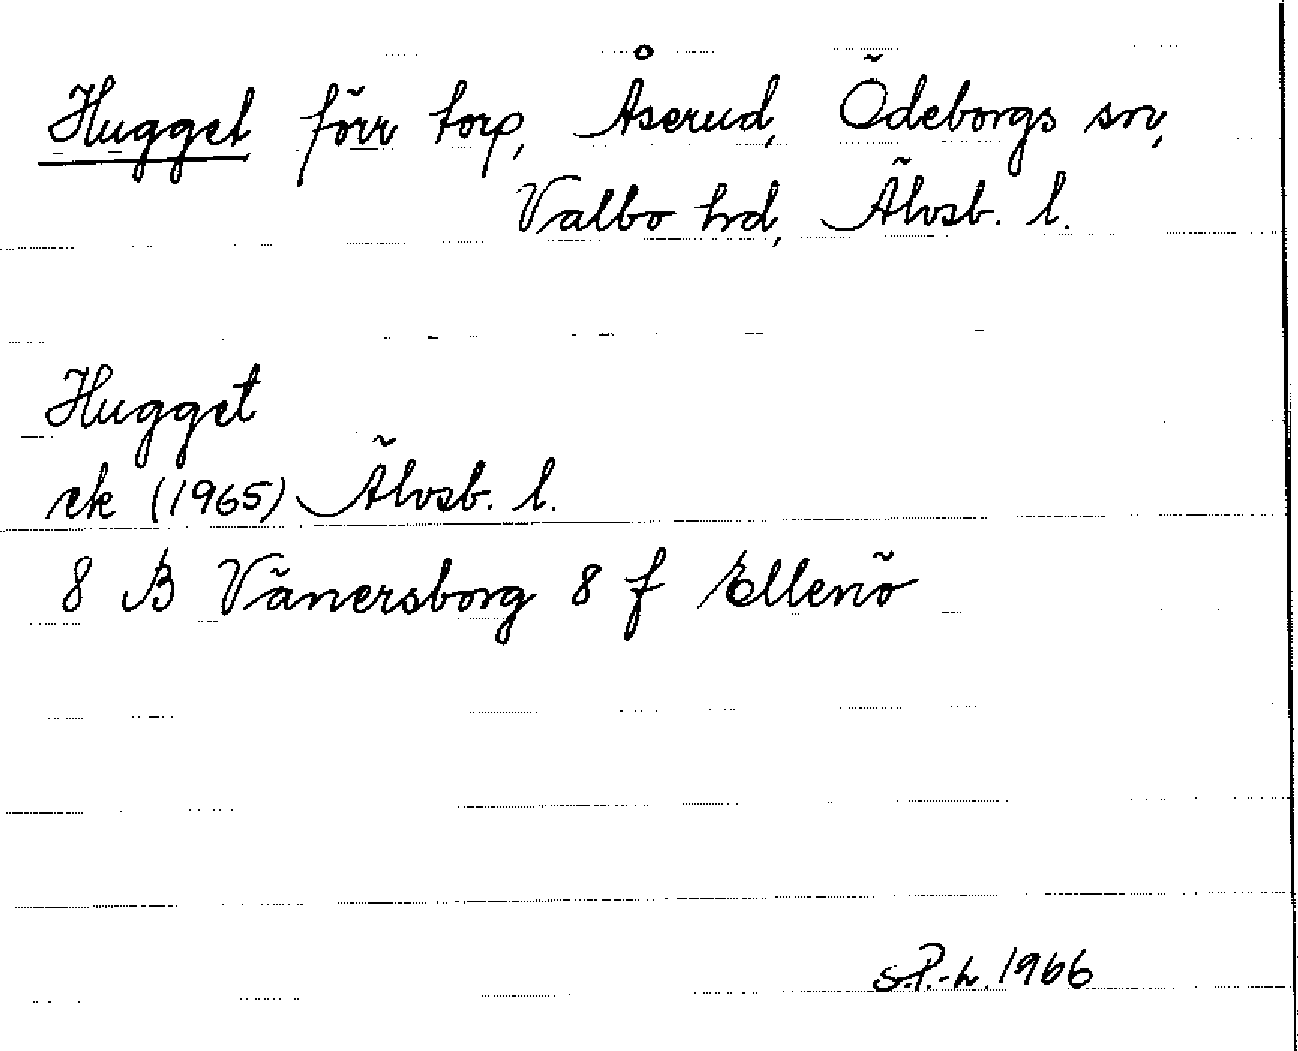 Hugget förr torp, Åserud, Ödeborgs sn,
Valbo hd, Älvsb. l.
Hugget
ek (1965) Älvsb. l.
8 B Vänersborg 8 f Ellenö
S.P.-h. 1966